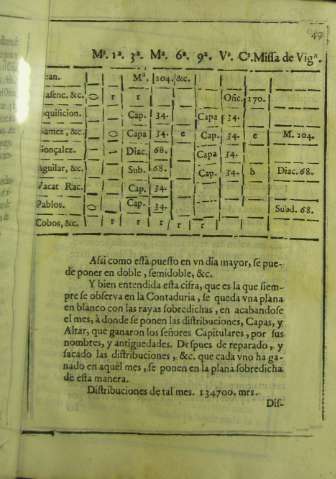 49
Mª. 1ª. 3ª. Mª. 6ª. 9ª. Vª. Cª. Missa de Vigª.
Mª. 104. &c.
&c. O r r Ofic. 170.
quisicion. Cap. 34. Capa 34.
&c. O Capa 34. e Cap. 34. e M. 104.
onçalez. Diac. 68. Capa 34.
guilar, &c. Sub. 68. Cap. 34. b Diac. 68.
Vacat Rac. Cap. 34.
Pablos. O Cap. 34. Subd. 68.
Cobos, &c. r r r r r r
Assi como està puesto en vn dia mayor, se pue-
de poner en doble, semidoble, &c.
Y bien entendida esta cifra, que es la que siem-
pre se observa en la Contaduria, se queda vna plana
en blanco con las rayas sobredichas, en acabandose
el mes, à donde se ponen las distribuciones, Capas, y
Altar, que ganaron los señores Capitulares, por sus
nombres, y antiguedades. Despues de reparado, y
sacado las distribuciones, &c. que cada vno ha ga-
nado en aquèl mes, se ponen en la plana sobredicha
de esta manera.
Distribuciones de tal mes. 134700. mrs.
Dis-